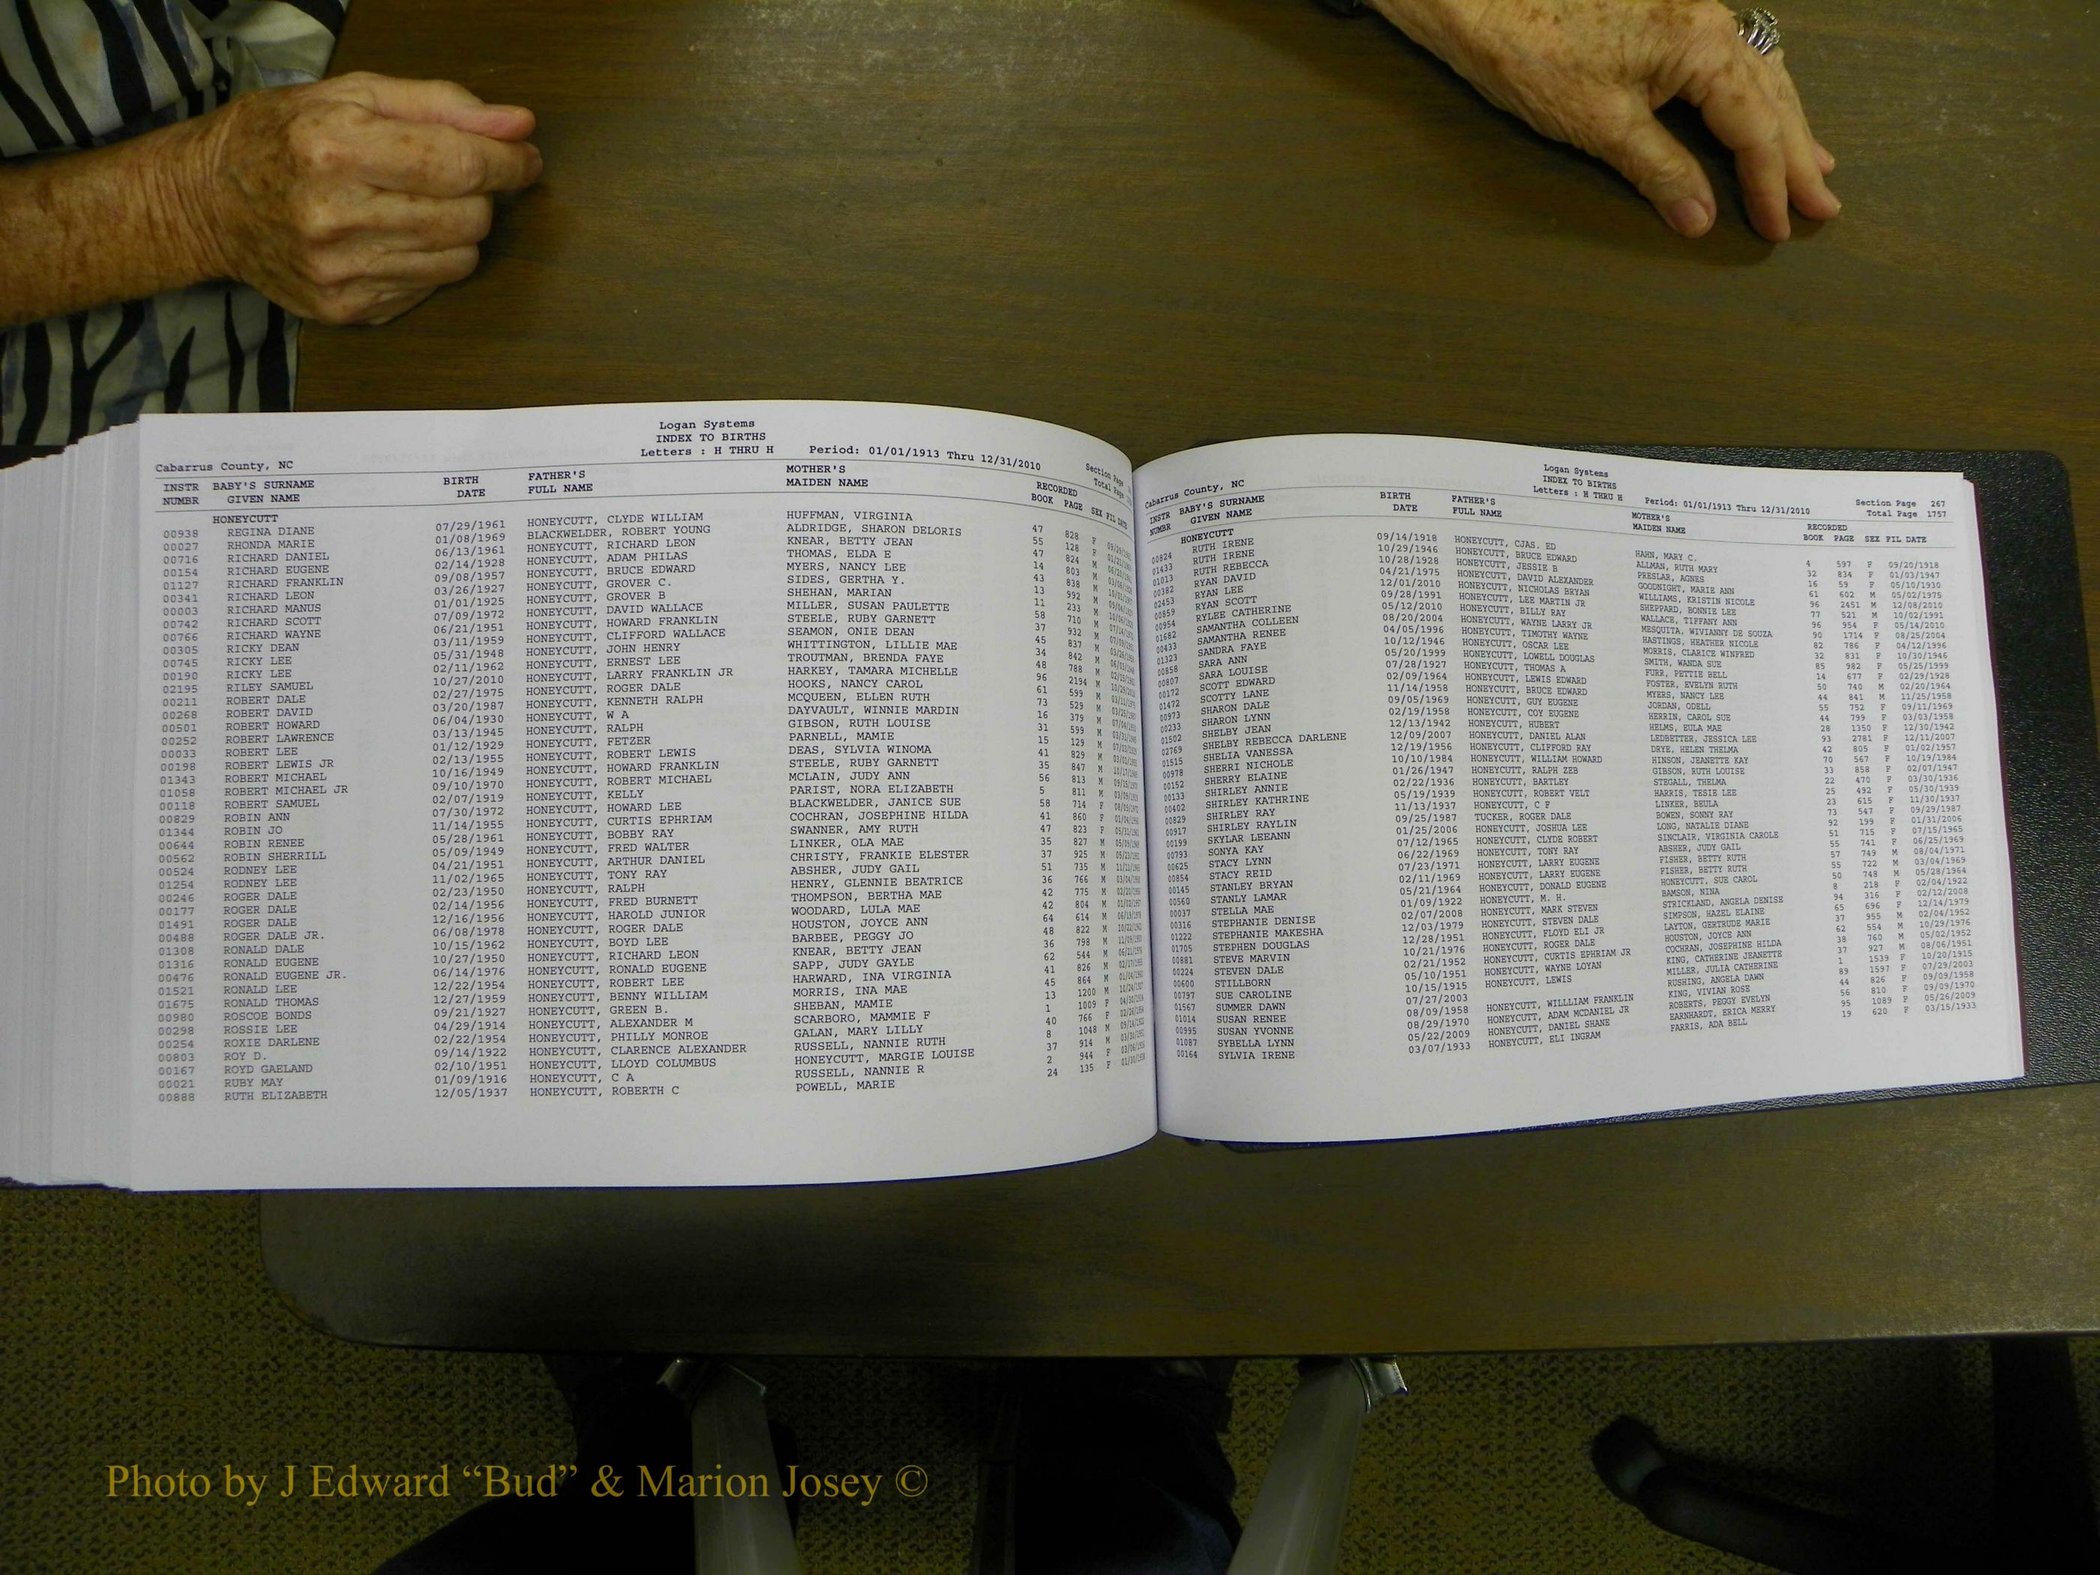 Logan Systems
INDEX TO BIRTHS
Cabarrus County, NC Letters : H THRU H Period: 01/01/1913 Thru 12/31/2010 Section Page
Total Page
INSTR BABY'S SURNAME BIRTH FATHER'S MOTHER'S RECORDED
NUMBR GIVEN NAME DATE FULL NAME MAIDEN NAME BOOK PAGE SEX FIL DATE
HONEYCUTT
00938 REGINA DIANE 07/29/1961 HONEYCUTT, CLYDE WILLIAM HUFFMAN, VIRGINIA 47 828 F
00027 RHONDA MARIE 01/08/1969 BLACKWELDER, ROBERT YOUNG ALDRIDGE, SHARON DELORIS 55 128 F
00716 RICHARD DANIEL 06/13/1961 HONEYCUTT, RICHARD LEON KNEAR, BETTY JEAN 47 824 M
00154 RICHARD EUGENE 02/14/1928 HONEYCUTT, ADAM PHILAS THOMAS, ELDA E 14 803 M
01127 RICHARD FRANKLIN 09/08/1957 HONEYCUTT, BRUCE EDWARD MYERS, NANCY LEE 43 838 M
00341 RICHARD LEON 03/26/1927 HONEYCUTT, GROVER C. SIDES, GERTHA Y. 13 992 M
00003 RICHARD MANUS 01/01/1925 HONEYCUTT, GROVER B SHEHAN, MARIAN 11 233 M
00742 RICHARD SCOTT 07/09/1972 HONEYCUTT, DAVID WALLACE MILLER, SUSAN PAULETTE 58 710 M
00766 RICHARD WAYNE 06/21/1951 HONEYCUTT, HOWARD FRANKLIN STEELE, RUBY GARNETT 37 932 M
00305 RICKY DEAN 03/11/1959 HONEYCUTT, CLIFFORD WALLACE SEAMON, ONIE DEAN 45 837 M
00745 RICKY LEE 05/31/1948 HONEYCUTT, JOHN HENRY WHITTINGTON, LILLIE MAE 34 842 M
00190 RICKY LEE 02/11/1962 HONEYCUTT, ERNEST LEE TROUTMAN, BRENDA FAYE 48 788 M
02195 RILEY SAMUEL 10/27/2010 HONEYCUTT, LARRY FRANKLIN JR HARKEY, TAMARA MICHELLE 96 2194 M
00211 ROBERT DALE 02/27/1975 HONEYCUTT, ROGER DALE HOOKS, NANCY CAROL 61 599 M
00268 ROBERT DAVID 03/20/1987 HONEYCUTT, KENNETH RALPH MCQUEEN, ELLEN RUTH 73 529 M
00501 ROBERT HOWARD 06/04/1930 HONEYCUTT, W A DAYVAULT, WINNIE MARDIN 16 379 M
00252 ROBERT LAWRENCE 03/13/1945 HONEYCUTT, RALPH GIBSON, RUTH LOUISE 31 599 M
00033 ROBERT LEE 01/12/1929 HONEYCUTT, FETZER PARNELL, MAMIE 15 129 M
00198 ROBERT LEWIS JR 02/13/1955 HONEYCUTT, ROBERT LEWIS DEAS, SYLVIA WINOMA 41 829 M
01343 ROBERT MICHAEL 10/16/1949 HONEYCUTT, HOWARD FRANKLIN STEELE, RUBY GARNETT 35 847 M
01058 ROBERT MICHAEL JR 09/10/1970 HONEYCUTT, ROBERT MICHAEL MCLAIN, JUDY ANN 56 813 M
00118 ROBERT SAMUEL 02/07/1919 HONEYCUTT, KELLY PARIST, NORA ELIZABETH 5 811 M
00829 ROBIN ANN 07/30/1972 HONEYCUTT, HOWARD LEE BLACKWELDER, JANICE SUE 58 714 F
01344 ROBIN JO 11/14/1955 HONEYCUTT, CURTIS EPHRIAM COCHRAN, JOSEPHINE HILDA 41 860 F
00644 ROBIN RENEE 05/28/1961 HONEYCUTT, BOBBY RAY SWANNER, AMY RUTH 47 823 F
00562 ROBIN SHERRILL 05/09/1949 HONEYCUTT, FRED WALTER LINKER, OLA MAE 35 827 M
00524 RODNEY LEE 04/21/1951 HONEYCUTT, ARTHUR DANIEL CHRISTY, FRANKIE ELESTER 37 925 M
01254 RODNEY LEE 11/02/1965 HONEYCUTT, TONY RAY ABSHER, JUDY GAIL 51 735 M
00246 ROGER DALE 02/23/1950 HONEYCUTT, RALPH HENRY, GLENNIE BEATRICE 36 766 M
00177 ROGER DALE 02/14/1956 HONEYCUTT, FRED BURNETT THOMPSON, BERTHA MAE 42 775 M
01491 ROGER DALE 12/16/1956 HONEYCUTT, HAROLD JUNIOR WOODARD, LULA MAE 42 804 M
00488 ROGER DALE JR. 06/08/1978 HONEYCUTT, ROGER DALE HOUSTON, JOYCE ANN 64 614 M
01308 RONALD DALE 10/15/1962 HONEYCUTT, BOYD LEE BARBEE, PEGGY JO 48 822 M
01316 RONALD EUGENE 10/27/1950 HONEYCUTT, RICHARD LEON KNEAR, BETTY JEAN 36 798 M
00476 RONALD EUGENE JR. 06/14/1976 HONEYCUTT, RONALD EUGENE SAPP, JUDY GAYLE 62 544 M
01521 RONALD LEE 12/22/1954 HONEYCUTT, ROBERT LEE HARWARD, INA VIRGINIA 41 826 M
01675 RONALD THOMAS 12/27/1959 HONEYCUTT, BENNY WILLIAM MORRIS, INA MAE 45 864 M
00980 ROSCOE BONDS 09/21/1927 HONEYCUTT, GREEN B. SHEBAN, MAMIE 13 1200 M
00298 ROSSIE LEE 04/29/1914 HONEYCUTT, ALEXANDER M SCARBORO, MAMMIE F 1 1009 F
00254 ROXIE DARLENE 02/22/1954 HONEYCUTT, PHILLY MONROE GALAN, MARY LILLY 40 766 F
00803 ROY D. 09/14/1922 HONEYCUTT, CLARENCE ALEXANDER RUSSELL, NANNIE RUTH 8 1048 M
00167 ROYD GAELAND 02/10/1951 HONEYCUTT, LLOYD COLUMBUS HONEYCUTT, MARGIE LOUISE 37 914 M
00021 RUBY MAY 01/09/1916 HONEYCUTT, C A RUSSELL, NANNIE R 2 944 F
00888 RUTH ELIZABETH 12/05/1937 HONEYCUTT, ROBERTH C POWELL, MARIE 24 135 F
Logan Systems
INDEX TO BIRTHS
Cabarrus County, NC Letters : H THRU H Period: 01/01/1913 Thru 12/31/2010 Section Page 267
Total Page 1757
INSTR BABY'S SURNAME BIRTH FATHER'S MOTHER'S RECORDED
NUMBR GIVEN NAME DATE FULL NAME MAIDEN NAME BOOK PAGE SEX FIL DATE
HONEYCUTT
00824 RUTH IRENE 09/14/1918 HONEYCUTT, CJAS. ED HAHN, MARY C. 4 597 F 09/20/1918
01433 RUTH IRENE 10/29/1946 HONEYCUTT, BRUCE EDWARD ALLMAN, RUTH MARY 32 834 F 01/03/1947
01013 RUTH REBECCA 10/28/1928 HONEYCUTT, JESSIE B PRESLAR, AGNES 16 59 F 05/10/1930
00382 RYAN DAVID 04/21/1975 HONEYCUTT, DAVID ALEXANDER GOODNIGHT, MARIE ANN 61 602 M 05/02/1975
02453 RYAN LEE 12/01/2010 HONEYCUTT, NICHOLAS BRYAN WILLIAMS, KRISTIN NICOLE 96 2451 M 12/08/2010
00859 RYAN SCOTT 09/28/1991 HONEYCUTT, LEE MARTIN JR SHEPPARD, BONNIE LEE 77 521 M 10/02/1991
00954 RYLEE CATHERINE 05/12/2010 HONEYCUTT, BILLY RAY WALLACE, TIFFANY ANN 96 954 F 05/14/2010
01682 SAMANTHA COLLEEN 08/20/2004 HONEYCUTT, WAYNE LARRY JR MESQUITA, WIVIANNY DE SOUZA 90 1714 F 08/25/2004
00433 SAMANTHA RENEE 04/05/1996 HONEYCUTT, TIMOTHY WAYNE HASTINGS, HEATHER NICOLE 82 786 F 04/12/1996
01323 SANDRA FAYE 10/12/1946 HONEYCUTT, OSCAR LEE MORRIS, CLARICE WINFRED 32 831 F 10/30/1946
00858 SARA ANN 05/20/1999 HONEYCUTT, LOWELL DOUGLAS SMITH, WANDA SUE 85 982 F 05/25/1999
00807 SARA LOUISE 07/28/1927 HONEYCUTT, THOMAS A FURR, PETTIE BELL 14 677 F 02/29/1928
00172 SCOTT EDWARD 02/09/1964 HONEYCUTT, LEWIS EDWARD FOSTER, EVELYN RUTH 50 740 M 02/20/1964
01472 SCOTTY LANE 11/14/1958 HONEYCUTT, BRUCE EDWARD MYERS, NANCY LEE 44 841 M 11/25/1958
00973 SHARON DALE 09/05/1969 HONEYCUTT, GUY EUGENE JORDAN, ODELL 55 752 F 09/11/1969
00233 SHARON LYNN 02/19/1958 HONEYCUTT, COY EUGENE HERRIN, CAROL SUE 44 799 F 03/03/1958
01502 SHELBY JEAN 12/13/1942 HONEYCUTT, HUBERT HELMS, EULA MAE 28 1350 F 12/30/1942
02769 SHELBY REBECCA DARLENE 12/09/2007 HONEYCUTT, DANIEL ALAN LEDBETTER, JESSICA LEE 93 2781 F 12/11/2007
01515 SHELIA VANESSA 12/19/1956 HONEYCUTT, CLIFFORD RAY DRYE, HELEN THELMA 42 805 F 01/02/1957
00978 SHERRI NICHOLE 10/10/1984 HONEYCUTT, WILLIAM HOWARD HINSON, JEANETTE KAY 70 567 F 10/19/1984
00152 SHERRY ELAINE 01/26/1947 HONEYCUTT, RALPH ZEB GIBSON, RUTH LOUISE 33 858 F 02/07/1947
00133 SHIRLEY ANNIE 02/22/1936 HONEYCUTT, BARTLEY STEGALL, THELMA 22 470 F 03/30/1936
00402 SHIRLEY KATHRINE 05/19/1939 HONEYCUTT, ROBERT VELT HARRIS, TESIE LEE 25 492 F 05/30/1939
00829 SHIRLEY RAY 11/13/1937 HONEYCUTT, C F LINKER, BEULA 23 615 F 11/30/1937
00917 SHIRLEY RAYLIN 09/25/1987 TUCKER, ROGER DALE BOWEN, SONNY RAY 73 547 F 09/29/1987
00199 SKYLAR LEEANN 01/25/2006 HONEYCUTT, JOSHUA LEE LONG, NATALIE DIANE 92 199 F 01/31/2006
00793 SONYA KAY 07/12/1965 HONEYCUTT, CLYDE ROBERT SINCLAIR, VIRGINIA CAROLE 51 715 F 07/15/1965
00625 STACY LYNN 06/22/1969 HONEYCUTT, TONY RAY ABSHER, JUDY GAIL 55 741 F 06/25/1969
00854 STACY REID 07/23/1971 HONEYCUTT, LARRY EUGENE FISHER, BETTY RUTH 57 749 M 08/04/1971
00145 STANLEY BRYAN 02/11/1969 HONEYCUTT, LARRY EUGENE FISHER, BETTY RUTH 55 722 M 03/04/1969
00560 STANLY LAMAR 05/21/1964 HONEYCUTT, DONALD EUGENE HONEYCUTT, SUE CAROL 50 748 M 05/28/1964
00037 STELLA MAE 01/09/1922 HONEYCUTT, M. H. BAMSON, NINA 8 218 F 02/04/1922
00316 STEPHANIE DENISE 02/07/2008 HONEYCUTT, MARK STEVEN STRICKLAND, ANGELA DENISE 94 316 F 02/12/2008
01222 STEPHANIE MAKESHA 12/03/1979 HONEYCUTT, STEVEN DALE SIMPSON, HAZEL ELAINE 65 696 F 12/14/1979
01705 STEPHEN DOUGLAS 12/28/1951 HONEYCUTT, FLOYD ELI JR LAYTON, GERTRUDE MARIE 37 955 M 02/04/1952
00881 STEVE MARVIN 10/21/1976 HONEYCUTT, ROGER DALE HOUSTON, JOYCE ANN 62 554 M 10/29/1976
00224 STEVEN DALE 02/21/1952 HONEYCUTT, CURTIS EPHRIAM JR COCHRAN, JOSEPHINE HILDA 38 760 M 05/02/1952
00600 STILLBORN 05/10/1951 HONEYCUTT, WAYNE LOYAN KING, CATHERINE JEANETTE 37 927 M 08/06/1951
00797 SUE CAROLINE 10/15/1915 HONEYCUTT, LEWIS MILLER, JULIA CATHERINE 1 1539 F 10/20/1915
01567 SUMMER DAWN 07/27/2003 RUSHING, ANGELA DAWN 89 1597 F 07/29/2003
01014 SUSAN RENEE 08/09/1958 HONEYCUTT, WILLLIAM FRANKLIN KING, VIVIAN ROSE 44 826 F 09/09/1958
00995 SUSAN YVONNE 08/29/1970 HONEYCUTT, ADAM MCDANIEL JR ROBERTS, PEGGY EVELYN 56 810 F 09/09/1970
01087 SYBELLA LYNN 05/22/2009 HONEYCUTT, DANIEL SHANE EARNHARDT, ERICA MERRY 95 1089 F 05/26/2009
00164 SYLVIA IRENE 03/07/1933 HONEYCUTT, ELI INGRAM FARRIS, ADA BELL 19 620 F 03/15/1933
Photo by J Edward “Bud” & Marion Josey ©